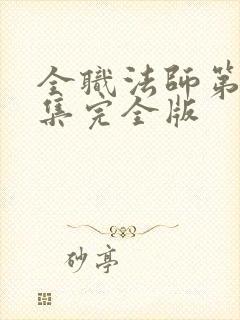 全職法師第
集完全版
砂亭